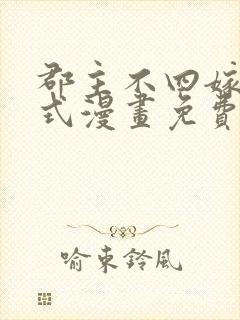 郡主不四嫁
式漫畫免費
喻東鈴風